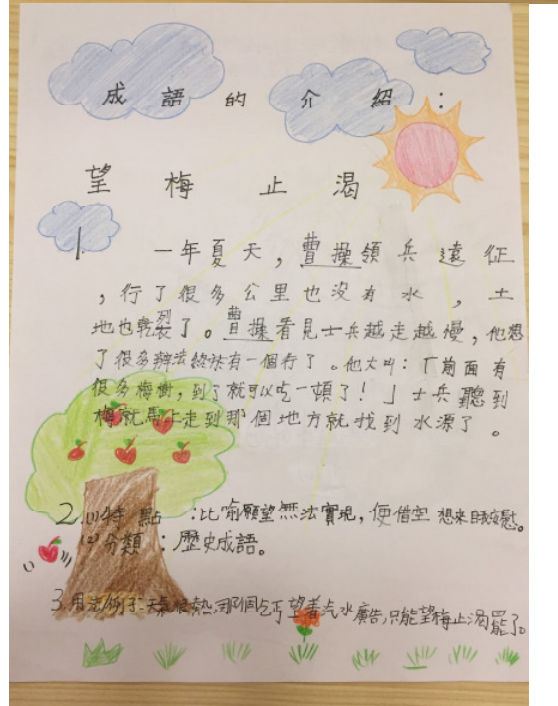 成語的介紹：
望梅止渴
1. 一年夏天，曹操領兵遠征
，行了很多公里也沒有水，土
地也乾裂了。曹操看見士兵越走越慢，他想
了很多辦法終於有一個行了。他大叫：「前面有
很多梅樹，到了就可以吃一頓了！」士兵聽到
梅就馬上走到那個地方就找到水源了。
2.(1)特點：比喻願望無法實現，便借空想來自我安慰。
(2)分類：歷史成語。
3.用法例子：天氣很熱，那個乞丐望着汽水廣告，只能望梅止渴罷了。